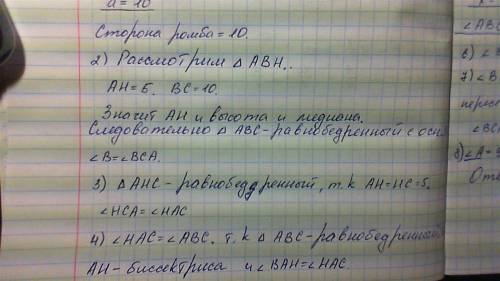 a = 10
Сторона ромба = 10.
2) Рассмотрим △ ABH..
AH = 5. BC = 10.
Значит AH и высота и медиана.
Следовательно △ ABC - равнобедренный с осн.
∠B = ∠BCA.
3) △ AHC - равнобедренный, т.к AH = HC = 5.
∠HCA = ∠HAC
4) ∠HAC = ∠ABC. т.к △ ABC - равнобедренный
AH - биссектриса и ∠BAH = ∠HAC.
∠ABC
6) ∠B
7) ∠B
перес
∠BC
8) ∠A =
Отв